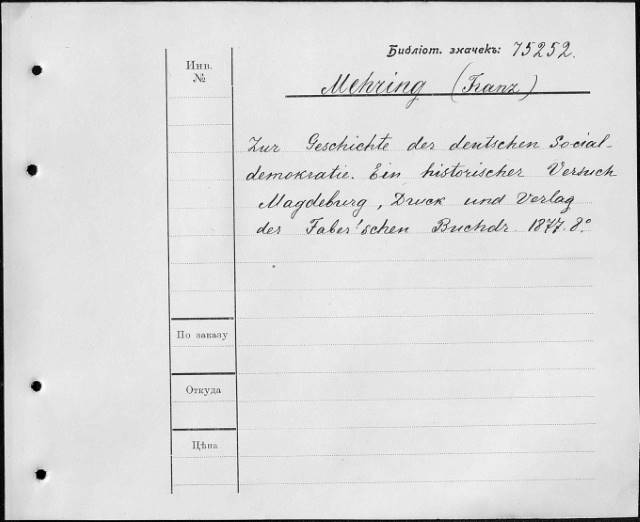 Библіот. значекъ: 75252.
Инв.
№
Mehring (Franz)
Zur Geschichte der deutschen Social-
demokratie. Ein historischer Versuch
Magdeburg, Druck und Verlag
der Faber'schen Buchdr. 1877. 8°
По заказу
Откуда
Цѣна